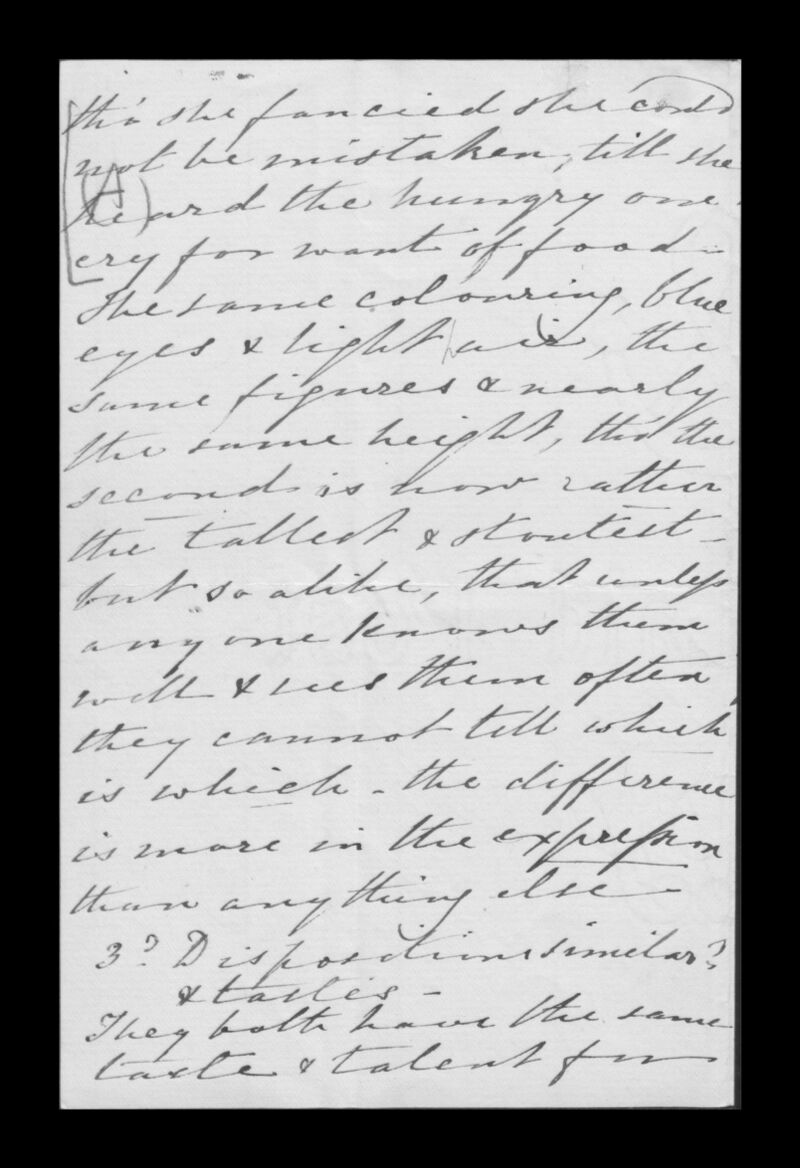 tho' she fancied she could
not be mistaken, till she
(A)
heard the hungry one
cry for want of food -
The same colouring, blue
eyes & light hair, the
same figures & nearly
the same height, tho' the
second is now rather
the tallest & stoutest -
but so alike, that unless
any one knows them
well & sees them often,
they cannot tell which
is which - the difference
is more in the expression
than anything else -
3? Dispositions similar?
& tastes -
They both have the same
taste & talent for